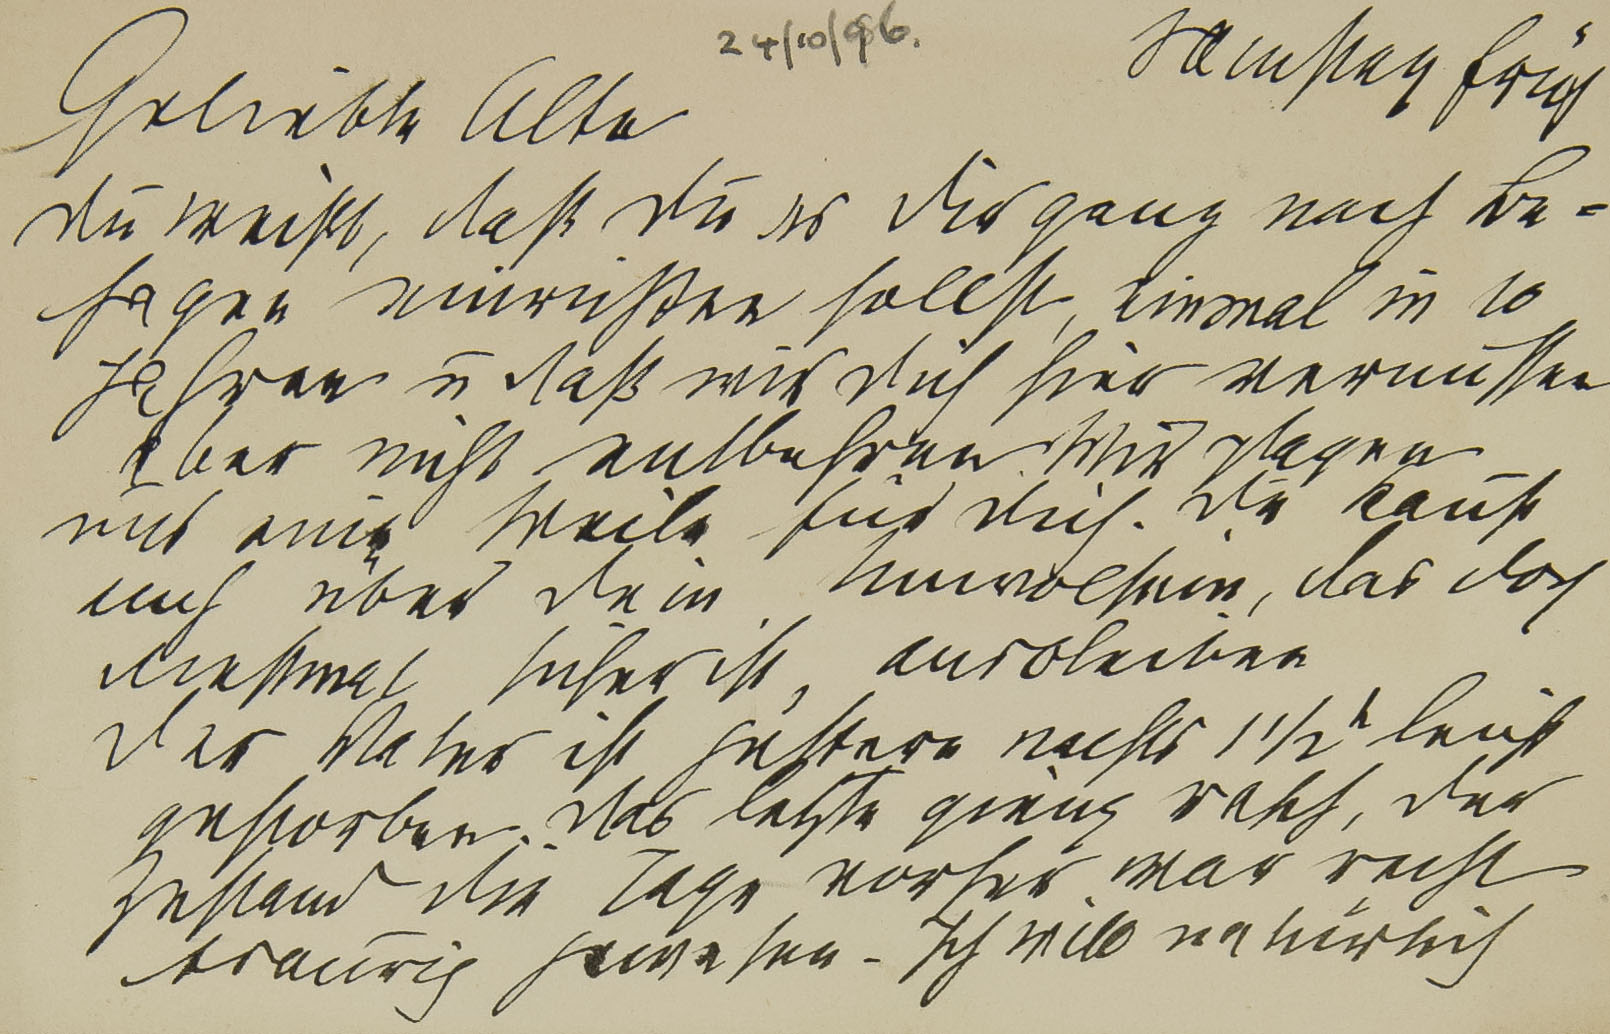 24/10/96.
Samstag früh
Geliebte Alte
Du weißt, daß du es Dir ganz nach Be-
hagen einrichten sollst, einmal in 10
Jahren u daß wir dich hier vermissen
aber nicht entbehren. Wir plagen
uns eine Weile für dich. Du kannst
auch über dein Unwolsein, das doch
diesmal sicher ist, ausbleiben
Der Vater ist gestern nachts 11½h leicht
gestorben. Das letzte gieng rasch, der
Zustand die Tage vorher war recht
traurig gewesen. – Ich will natürlich